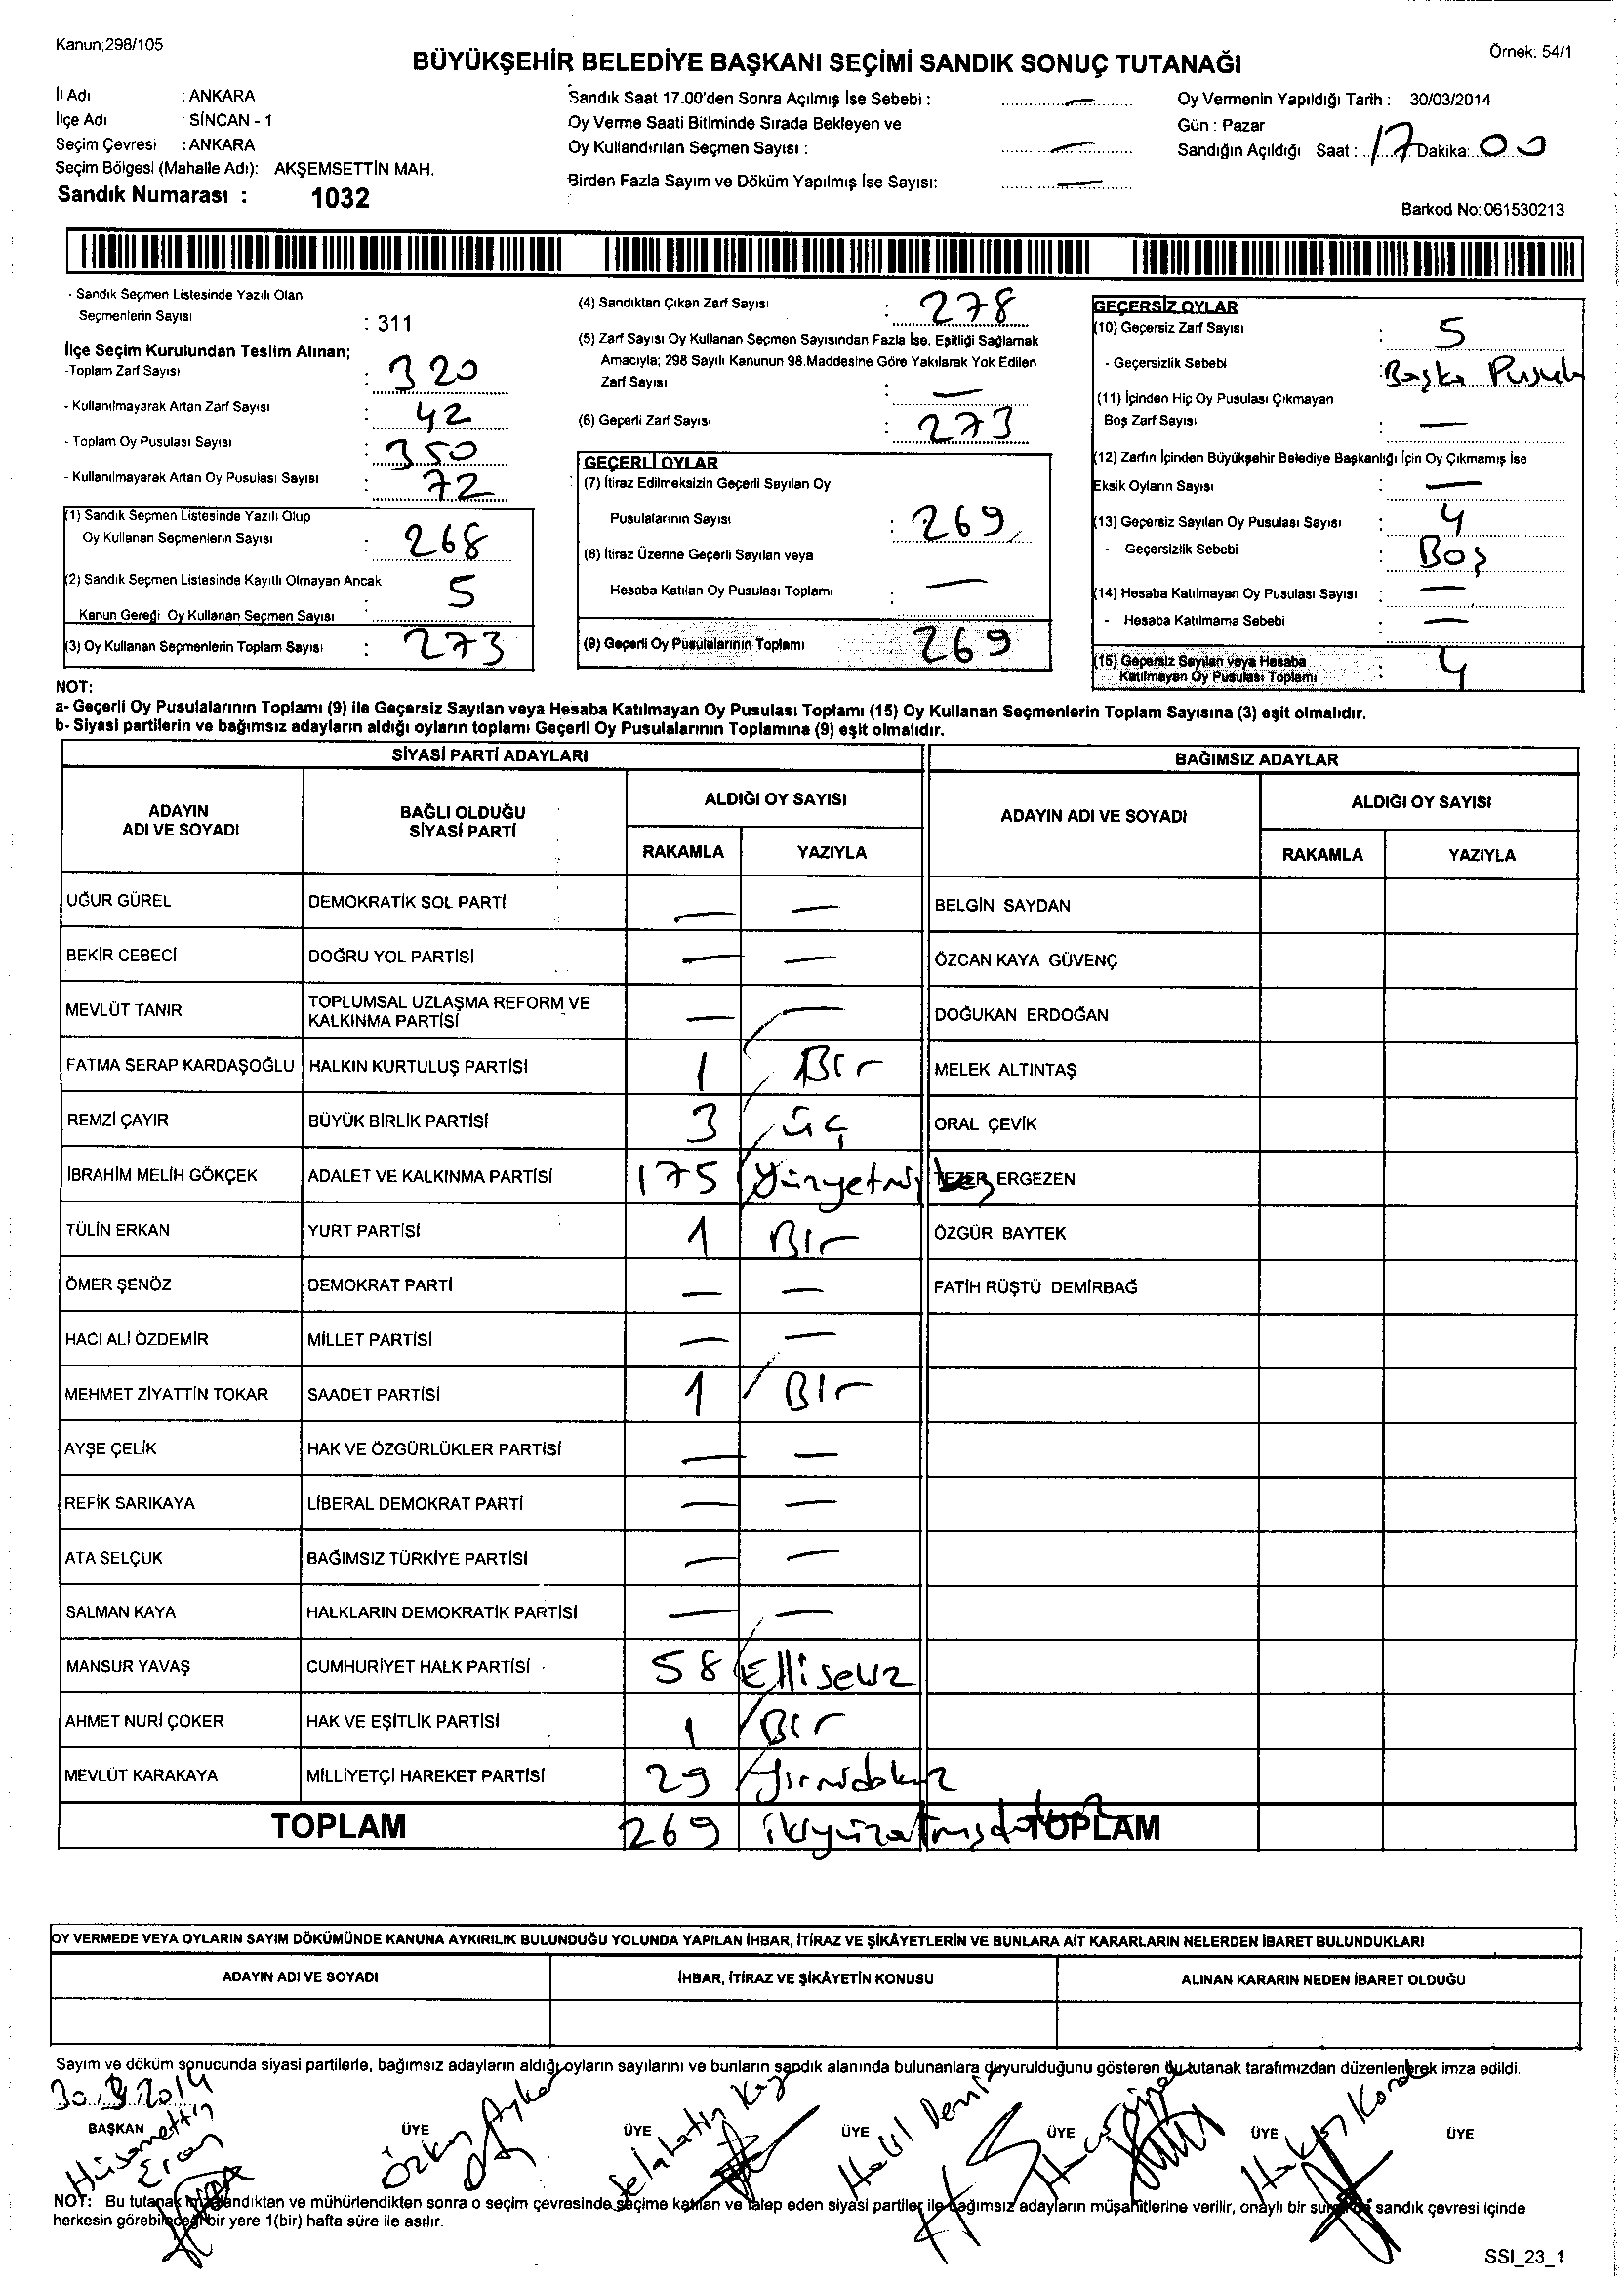 Kanun;298/105
Örnek: 54/1
BÜYÜKŞEHİR BELEDİYE BAŞKANI SEÇİMİ SANDIK SONUÇ TUTANAĞI
İl Adı : ANKARA
İlçe Adı : SİNCAN - 1
Seçim Çevresi : ANKARA
Seçim Bölgesi (Mahalle Adı): AKŞEMSETTİN MAH.
Sandık Numarası : 1032
Sandık Saat 17.00'den Sonra Açılmış İse Sebebi : —
Oy Verme Saati Bitiminde Sırada Bekleyen ve
Oy Kullandırılan Seçmen Sayısı : —
Birden Fazla Sayım ve Döküm Yapılmış İse Sayısı: —
Oy Vermenin Yapıldığı Tarih : 30/03/2014
Gün : Pazar
Sandığın Açıldığı Saat : 17 Dakika: 00
Barkod No: 061530213
- Sandık Seçmen Listesinde Yazılı Olan
Seçmenlerin Sayısı : 311
İlçe Seçim Kurulundan Teslim Alınan;
-Toplam Zarf Sayısı : 320
- Kullanılmayarak Artan Zarf Sayısı : 42
- Toplam Oy Pusulası Sayısı : 350
- Kullanılmayarak Artan Oy Pusulası Sayısı : 72
(1) Sandık Seçmen Listesinde Yazılı Olup
Oy Kullanan Seçmenlerin Sayısı : 268
(2) Sandık Seçmen Listesinde Kayıtlı Olmayan Ancak
Kanun Gereği Oy Kullanan Seçmen Sayısı : 5
(3) Oy Kullanan Seçmenlerin Toplam Sayısı : 273
(4) Sandıktan Çıkan Zarf Sayısı : 278
(5) Zarf Sayısı Oy Kullanan Seçmen Sayısından Fazla İse, Eşitliği Sağlamak
Amacıyla; 298 Sayılı Kanunun 98.Maddesine Göre Yakılarak Yok Edilen
Zarf Sayısı : —
(6) Geçerli Zarf Sayısı : 273
GEÇERLİ OYLAR
(7) İtiraz Edilmeksizin Geçerli Sayılan Oy
Pusulalarının Sayısı : 269
(8) İtiraz Üzerine Geçerli Sayılan veya
Hesaba Katılan Oy Pusulası Toplamı : —
(9) Geçerli Oy Pusulalarının Toplamı 269
GEÇERSİZ OYLAR
(10) Geçersiz Zarf Sayısı : 5
- Geçersizlik Sebebi : Başka Pusula
(11) İçinden Hiç Oy Pusulası Çıkmayan
Boş Zarf Sayısı : —
(12) Zarfın İçinden Büyükşehir Belediye Başkanlığı İçin Oy Çıkmamış İse
Eksik Oyların Sayısı : —
(13) Geçersiz Sayılan Oy Pusulası Sayısı : 4
- Geçersizlik Sebebi : Boş
(14) Hesaba Katılmayan Oy Pusulası Sayısı : —
- Hesaba Katılmama Sebebi : —
(15) Geçersiz Sayılan veya Hesaba
Katılmayan Oy Pusulası Toplamı : 4
NOT:
a- Geçerli Oy Pusulalarının Toplamı (9) ile Geçersiz Sayılan veya Hesaba Katılmayan Oy Pusulası Toplamı (15) Oy Kullanan Seçmenlerin Toplam Sayısına (3) eşit olmalıdır.
b- Siyasi partilerin ve bağımsız adayların aldığı oyların toplamı Geçerli Oy Pusulalarının Toplamına (9) eşit olmalıdır.
SİYASİ PARTİ ADAYLARI
BAĞIMSIZ ADAYLAR
ADAYIN ADI VE SOYADI
BAĞLI OLDUĞU SİYASİ PARTİ
ALDIĞI OY SAYISI
RAKAMLA YAZIYLA
ADAYIN ADI VE SOYADI
ALDIĞI OY SAYISI
RAKAMLA YAZIYLA
UĞUR GÜREL DEMOKRATİK SOL PARTİ — — BELGİN SAYDAN
BEKİR CEBECİ DOĞRU YOL PARTİSİ — — ÖZCAN KAYA GÜVENÇ
MEVLÜT TANIR TOPLUMSAL UZLAŞMA REFORM VE KALKINMA PARTİSİ — — DOĞUKAN ERDOĞAN
FATMA SERAP KARDAŞOĞLU HALKIN KURTULUŞ PARTİSİ 1 Bir MELEK ALTINTAŞ
REMZİ ÇAYIR BÜYÜK BİRLİK PARTİSİ 3 üç ORAL ÇEVİK
İBRAHİM MELİH GÖKÇEK ADALET VE KALKINMA PARTİSİ 175 Yüzyetmişbeş TEZER ERGEZEN
TÜLİN ERKAN YURT PARTİSİ 1 Bir ÖZGÜR BAYTEK
ÖMER ŞENÖZ DEMOKRAT PARTİ — — FATİH RÜŞTÜ DEMİRBAĞ
HACI ALİ ÖZDEMİR MİLLET PARTİSİ — —
MEHMET ZİYATTİN TOKAR SAADET PARTİSİ 1 Bir
AYŞE ÇELİK HAK VE ÖZGÜRLÜKLER PARTİSİ — —
REFİK SARIKAYA LİBERAL DEMOKRAT PARTİ — —
ATA SELÇUK BAĞIMSIZ TÜRKİYE PARTİSİ — —
SALMAN KAYA HALKLARIN DEMOKRATİK PARTİSİ — —
MANSUR YAVAŞ CUMHURİYET HALK PARTİSİ 58 Ellisekiz
AHMET NURİ ÇOKER HAK VE EŞİTLİK PARTİSİ 1 Bir
MEVLÜT KARAKAYA MİLLİYETÇİ HAREKET PARTİSİ 29 Yirmidokuz
TOPLAM 269 ikiyüzatmışdokuz TOPLAM
OY VERMEDE VEYA OYLARIN SAYIM DÖKÜMÜNDE KANUNA AYKIRILIK BULUNDUĞU YOLUNDA YAPILAN İHBAR, İTİRAZ VE ŞİKÂYETLERİN VE BUNLARA AİT KARARLARIN NELERDEN İBARET BULUNDUKLARI
ADAYIN ADI VE SOYADI İHBAR, İTİRAZ VE ŞİKÂYETİN KONUSU ALINAN KARARIN NEDEN İBARET OLDUĞU
Sayım ve döküm sonucunda siyasi partilerle, bağımsız adayların aldığı oyların sayılarını ve bunların sandık alanında bulunanlara duyurulduğunu gösteren bu tutanak tarafımızdan düzenlenerek imza edildi.
30.3.2014
BAŞKAN ÜYE ÜYE ÜYE ÜYE ÜYE ÜYE
Hüsamettin Eray
Selahattin
Halil Deniz
NOT: Bu tutanak imzalandıktan ve mühürlendikten sonra o seçim çevresinde seçime katılan ve talep eden siyasi partiler ile bağımsız adayların müşahitlerine verilir, onaylı bir sureti de sandık çevresi içinde
herkesin görebileceği bir yere 1(bir) hafta süre ile asılır.
SSI_23_1